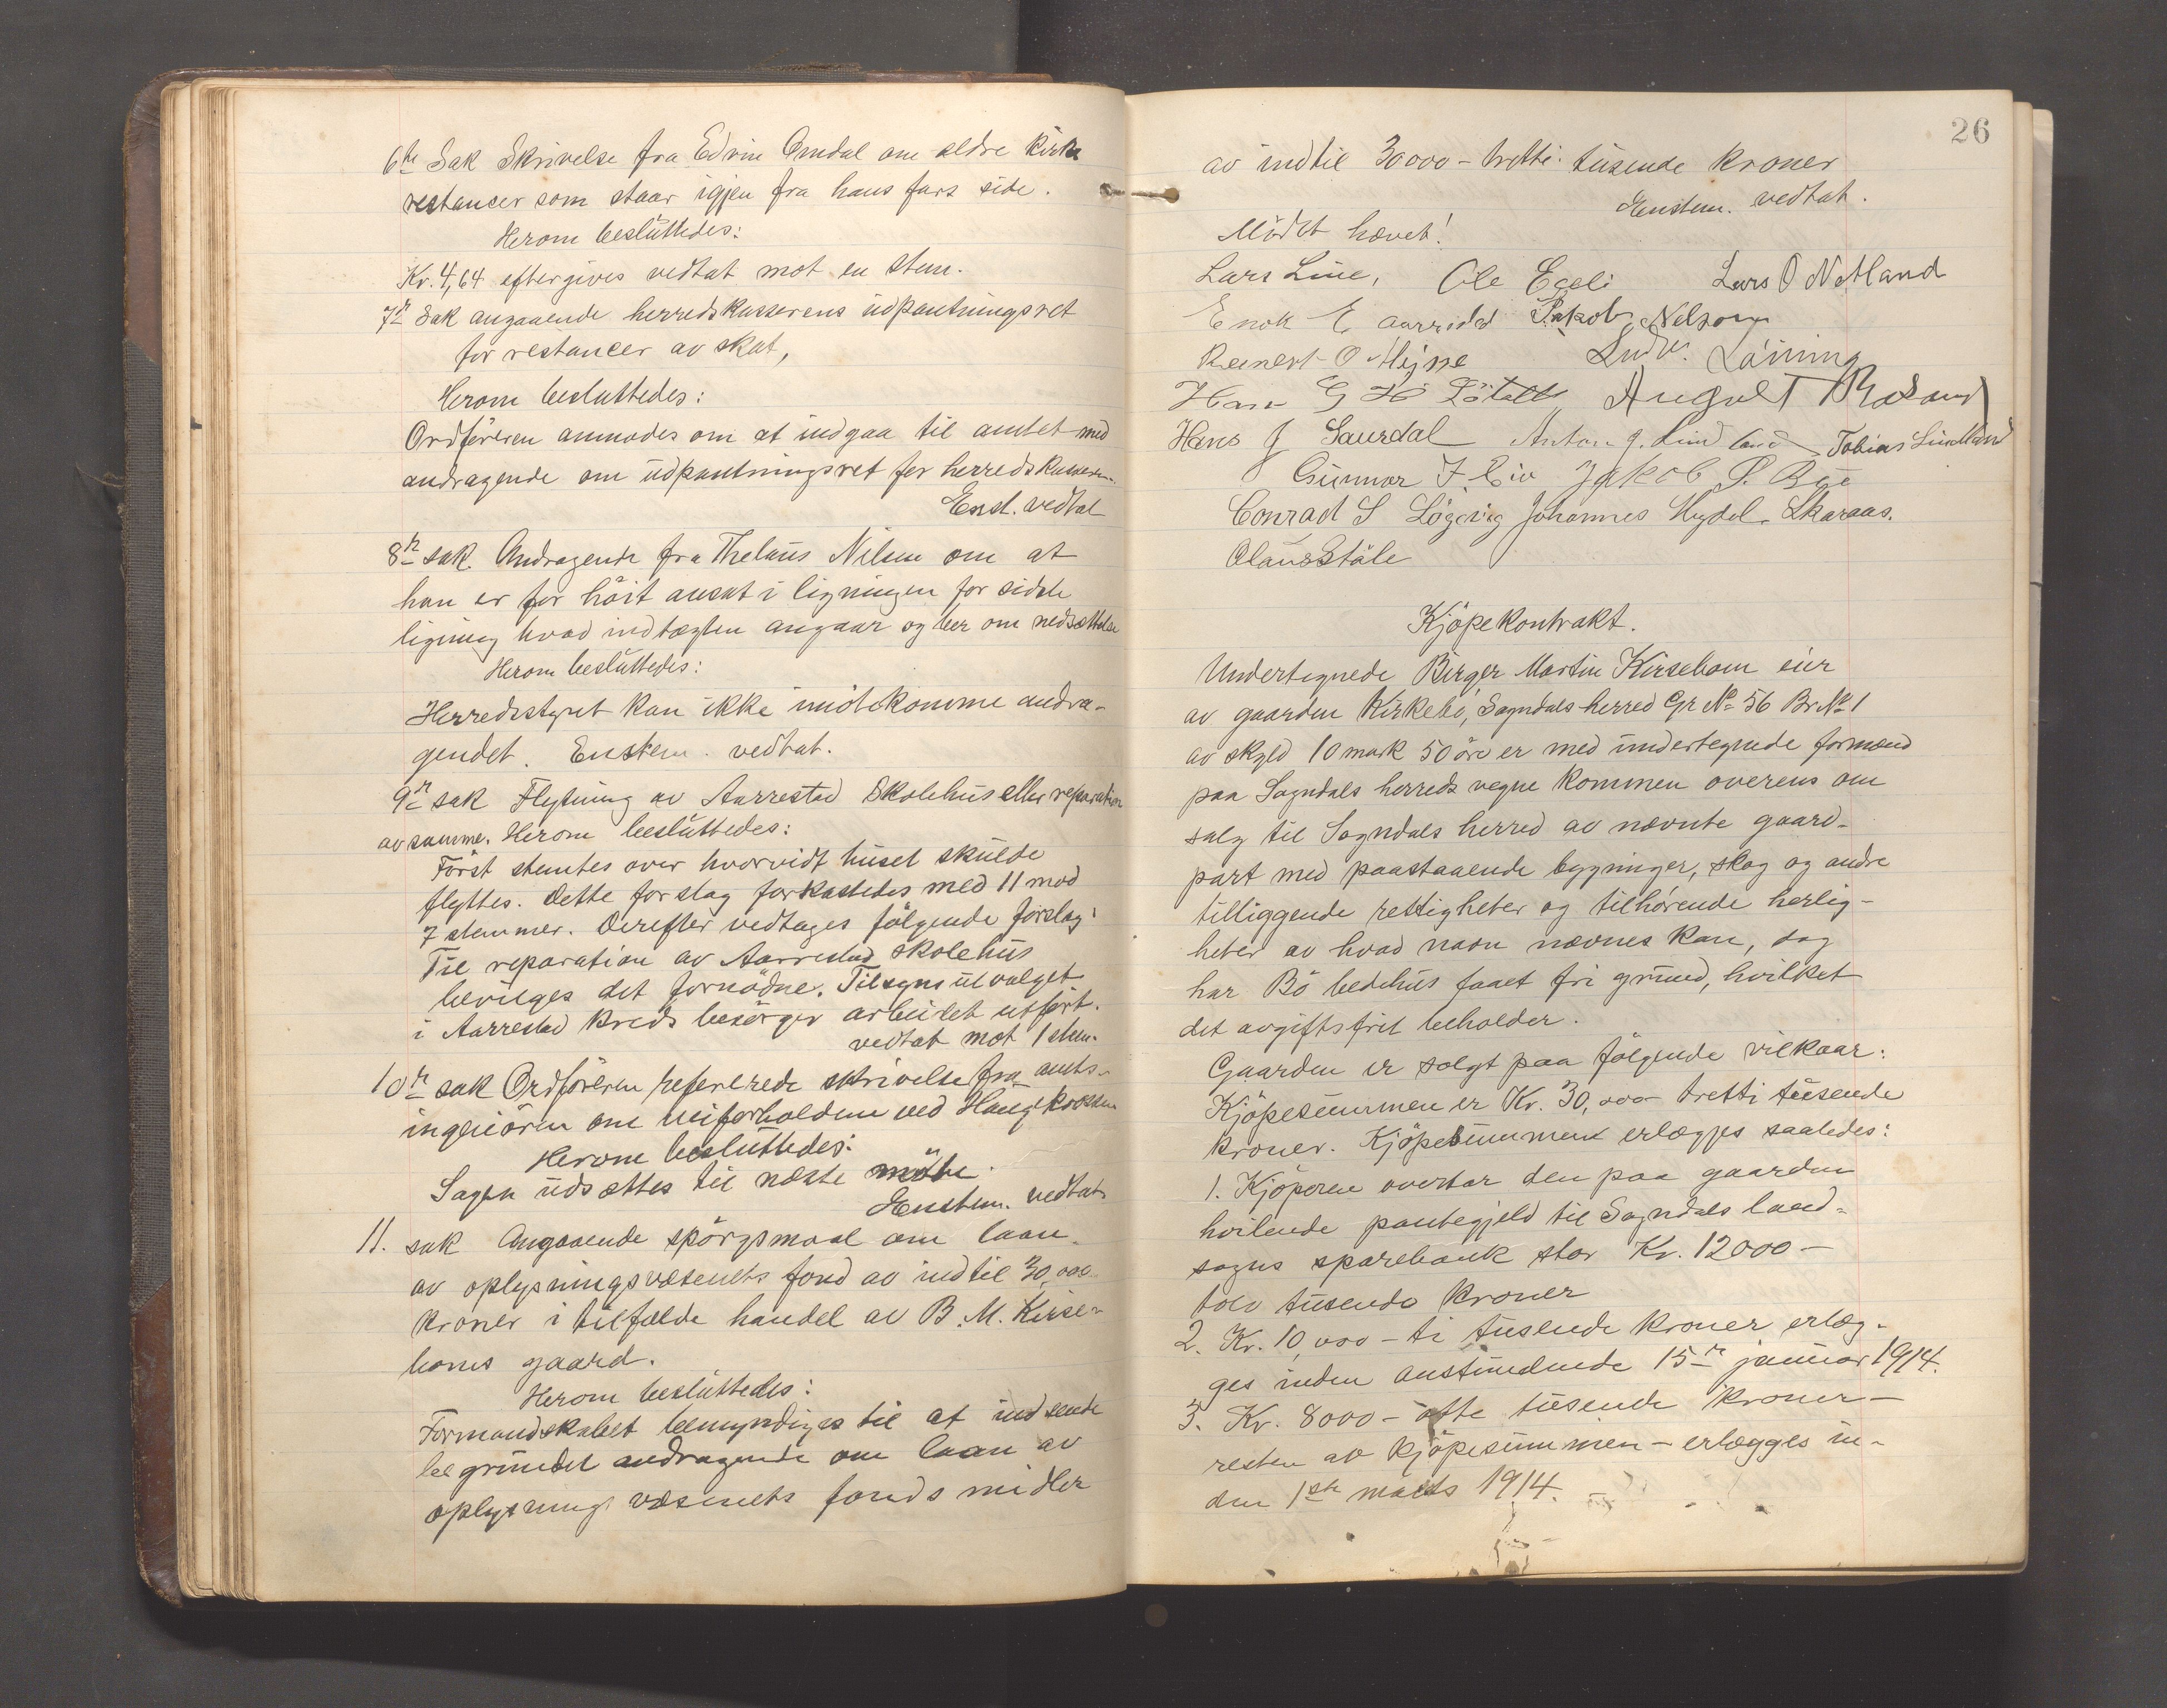 6te Sak Skrivelse fra Edvin Omdal om ældre kirke
restancer som staar igjen fra hans fars side.
Herom beslüttedes:
Kr. 4,64 eftergives vedtat mot en stem.
7de Sak angaaende herredskasserens üdpantningsret
for restancer av skat,
Herom besluttedes:
Ordföreren anmodes om at indgaa til amtet med
andragende om üdpantningsret for herredskasseren.
Enst. vedtat
8de sak. Andragende fra Theläus Nilsen om at
han er for höit ansat i ligningen for sidste
ligning hvad indtægten angaar og ber om nedsættelse
Herom beslüttedes:
Herredsstyret kan ikke imötekomme andra-
gendet. Enstem. vedtat.
9de sak Flytning av Aarrestad Skolehüs eller reparation
av samme. Herom beslüttedes:
Först stemtes over hvorvidt hüset skülde
flyttes. Dette forslag forkastedes med 11 mod
7 stemmer. Derefter vedtages fölgende forslag:
Til reparation av Aarrestad skolehüs
bevilges det fornödne. Tilsynsütvalget
i Aarrestad kreds besörger arbeidet utfört.
vedtat mot 1 stem.
10de sak Ordföreren refererede skrivelse fra amts-
ingeniören om veiforholdene ved Haugekrossen
Herom beslüttedes:
Sagen üdsættes til næste möte.
Enstem. vedtat
11. sak Angaaende spörgsmaal om laan
av oplysningsvæsenets fond av indtil 30,000
kroner i tilfælde handel av B. M. Kirse-
boms gaard.
Herom beslüttedes:
Formandskabet bemyndiges til at indsende
begründet andragende om laan av
oplysningsvæsenets fonds midler
26
av indtil 30000 - tretti tüsende kroner
Enstem. vedtat.
Mödet hævet!
Lars Line, Ole Egeli Lars O Netland
Enok E Aarrestad Jakob Nelson
Reinert O Mysse Ludv. Löining
Hans G August Rosland
Hans J Saurdal Anton J. Lindland Tobias Lindland
Günnar T. Eie Jakob P. Bøe
Conrad S Lögning Johannes Mydl. Skaraas.
Olaus Ståle
Kjöpekontrakt.
Undertegnede Birger Martin Kirsebom eier
av gaarden Kirkebö, Sogndals herred Gr No 56 Br. No 1
av skyld 10 mark 50 öre er med ündertegnede formænd
paa Sogndals herreds vegne kommen overens om
salg til Sogndals herred av nævnte gaard-
part med paastaaende bygninger, skog og andre
tilliggende rettigheter og tilhörende herlig-
heter av hvad navn nævnes kan, dog
har Bö bedehüs faaet fri gründ, hvilket
det avgiftsfrit beholder.
Gaarden er solgt paa fölgende vilkaar:
Kjöpesümmen er Kr. 30,000 - tretti tüsende
kroner. Kjöpesümmen erlægges saaledes:
1. Kjöperen overtar den paa gaarden
hvilende pantegjeld til Sogndals land-
sogns sparebank stor Kr. 12000 -
tolv tüsende kroner
2. Kr. 10,000 - ti tüsende kroner erlæg-
ges inden anstundende 15de januar 1914.
3. Kr. 8000 - otte tüsende kroner -
resten av kjöpesümmen - erlægges in-
den 1ste marts 1914.